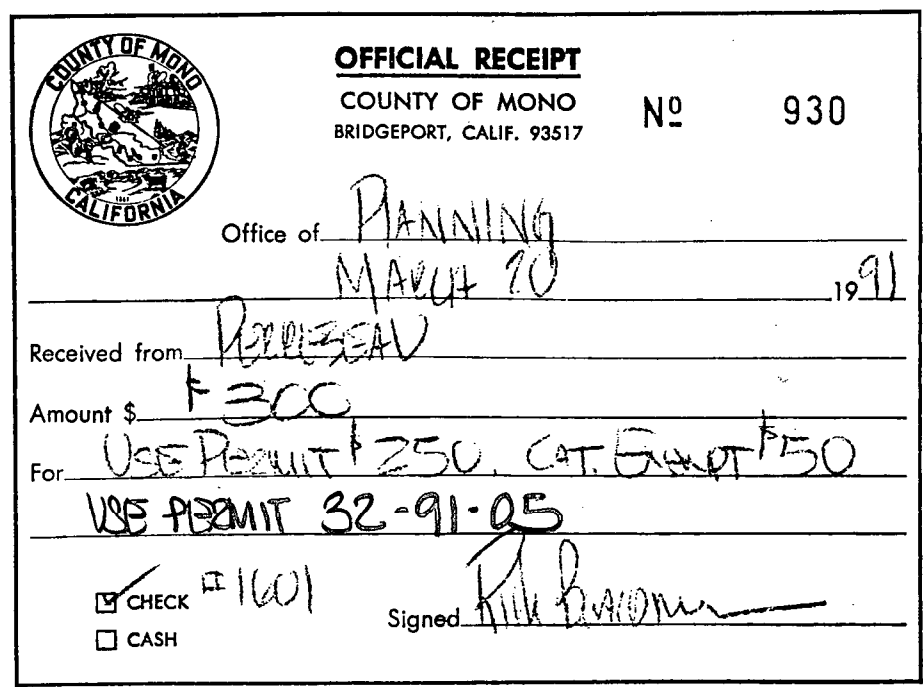 COUNTY OF MONO
CALIFORNIA
OFFICIAL RECEIPT
COUNTY OF MONO
BRIDGEPORT, CALIF. 93517
Nº 930
Office of PLANNING
MARCH 20 1991
Received from
Amount $ $300
For USE PERMIT $250. CAT. EXEMPT $50
USE PERMIT 32-91-05
CHECK #1601
CASH
Signed Rick